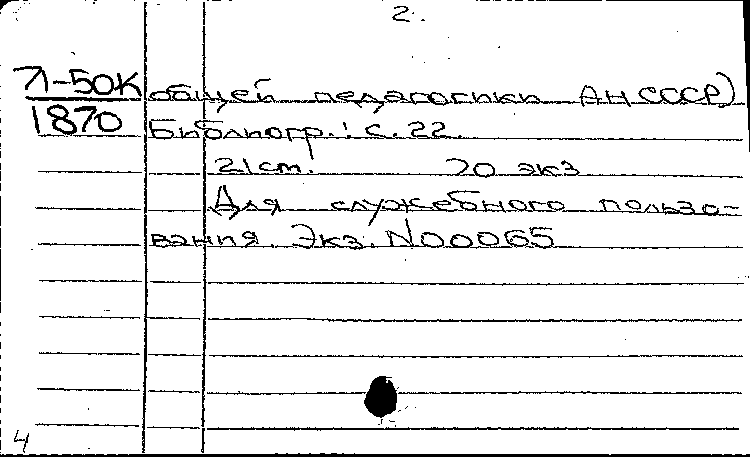 2.
Л-50К
1870
общей педагогики АН СССР)
Библиогр.: с. 22.
21 cm. 70 экз
Для служебного пользо-
вания. Экз. N00065
4